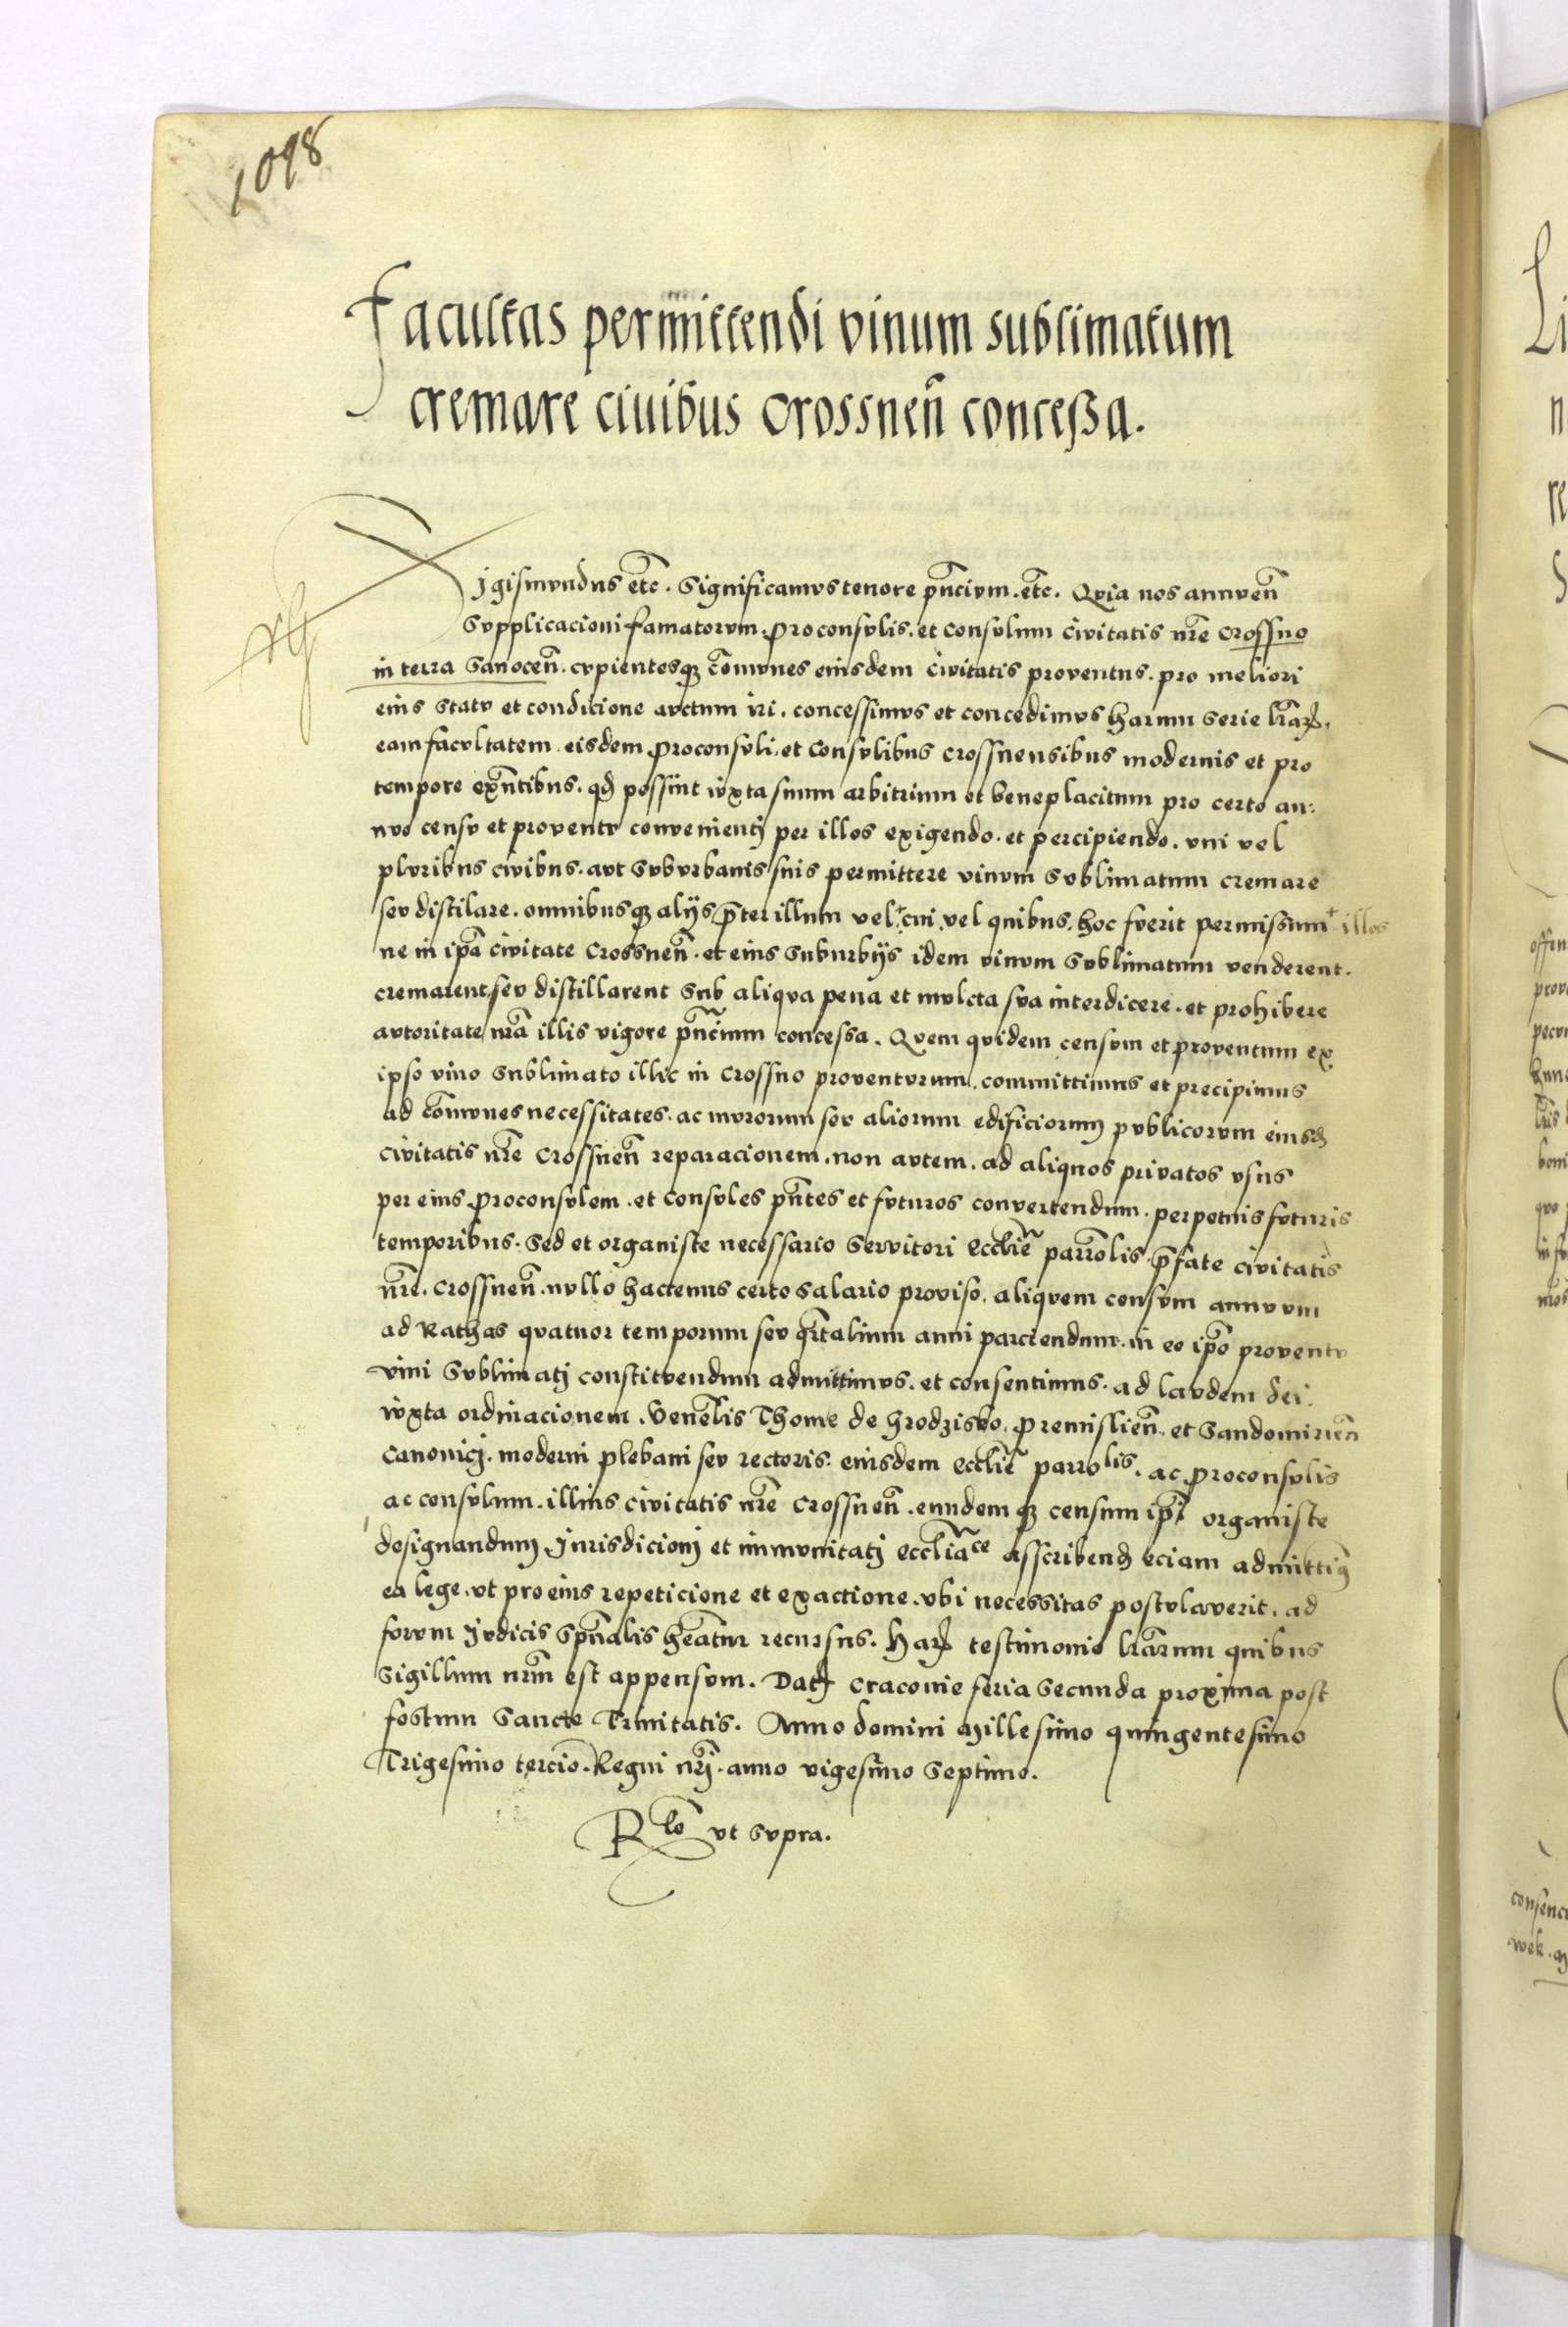 1098
Facultas permittendi vinum sublimatum
cremare civibus Crossnen̄ concessa.
Sigismundus etc̄. Significamus tenore pn̄cium. etc̄. Quia nos annuen̄
supplicacioni famatorum. proconsulis. et consulum civitatis nr̄e Crossno
in terra Sanocen̄. cupientesqz cōmunes eiusdem civitatis proventus. pro meliori
eius statu et condicione auctum iri. concessimus et concedimus harum serie lr̄arꝝ.
eam facultatem eisdem proconsuli. et consulibus Crossnensibus modernis et pro
tempore exn̄tibus. qd possint iuxta suum arbitrium et beneplacitum pro certo an:
nuo censu et proventu convenientj per illos exigendo. et percipiendo. uni vel
pluribus civibus. aut suburbanis suis permittere vinum sublimatum cremare
seu distilare. omnibusqz alijs p̄ter illum vel + cui vel quibus. hoc fuerit permissum + illos
ne in ip̄a civitate Crossnen̄. et eius suburbijs idem vinum sublimatum venderent.
cremarent seu distillarent sub aliqua pena et mulcta sua interdicere. et prohibere
autoritate nr̄a illis vigore pn̄cium concessa. Quem quidem censum et proventum ex
ipso vino sublimato illic in Crossno proventurum. committimus et precipimus
ad cōmunes necessitates. ac murorum seu aliorum edificiorum publicorum eiusd
civitatis nr̄e Crossnen̄ reparacionem. non autem. ad aliquos privatos usus
per eius proconsulem. et consules pn̄tes et futuros convertendum. perpetuis futuris
temporibus. Sed et organiste necessario servitori eccl̄ie parrōlis. p̄fate civitatis
nr̄e. Crossnen̄. nullo hactenus certo salario proviso. aliquem censum annuum
ad Rathas quatuor temporum seu qr̄talium anni parciendum. in eo ip̄o proventu
vini sublimatj constituendum admittimus. et consentimus. ad laudem dei.
iuxta ordinacionem. Venēlis Thome de Hrodzisko. Premislien̄. et Sandomirien̄
Canonicj. moderni plebani seu rectoris. eiusdem eccl̄ie parrolis. ac proconsulis
ac consulum. illius civitatis nr̄e Crossnen̄. eundemqz censum ip̄i organiste
designandum Jurisdicionj et immunitatj eccl̄iace asscribend eciam admittim9
ea lege. ut pro eius repeticione et exactione. ubi necessitas postulaverit. ad
forum Judicis spūalis hēatur recursus. Harꝝ testimonio lr̄arum quibus
sigillum nr̄um est appensum. Datꝭ Cracovie feria secunda proxima post
festum Sancte Trinitatis. Anno domini Millesimo quingentesimo
Trigesimo tercio. Regni nr̄j. anno vigesimo septimo.
Rlō ut supra.